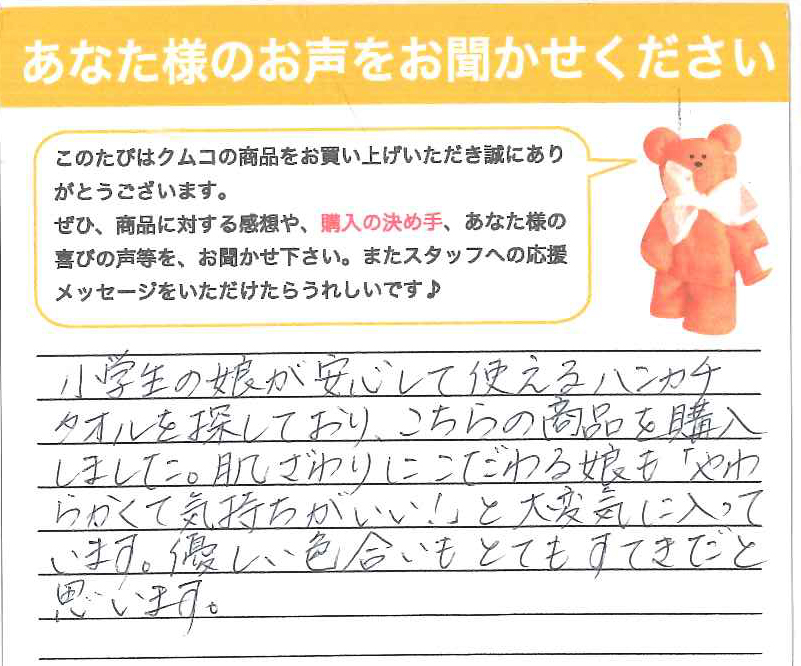 あなた様のお声をお聞かせください
このたびはクムコの商品をお買い上げいただき誠にあり
がとうございます。
ぜひ、商品に対する感想や、購入の決め手、あなた様の
喜びの声等を、お聞かせ下さい。またスタッフへの応援
メッセージをいただけたらうれしいです♪
小学生の娘が安心して使えるハンカチ
タオルを探しており、こちらの商品を購入
しました。肌ざわりにこだわる娘も「やわ
らかくて気持ちがいい!」と大変気に入って
います。優しい色合いもとてもすてきだと
思います。